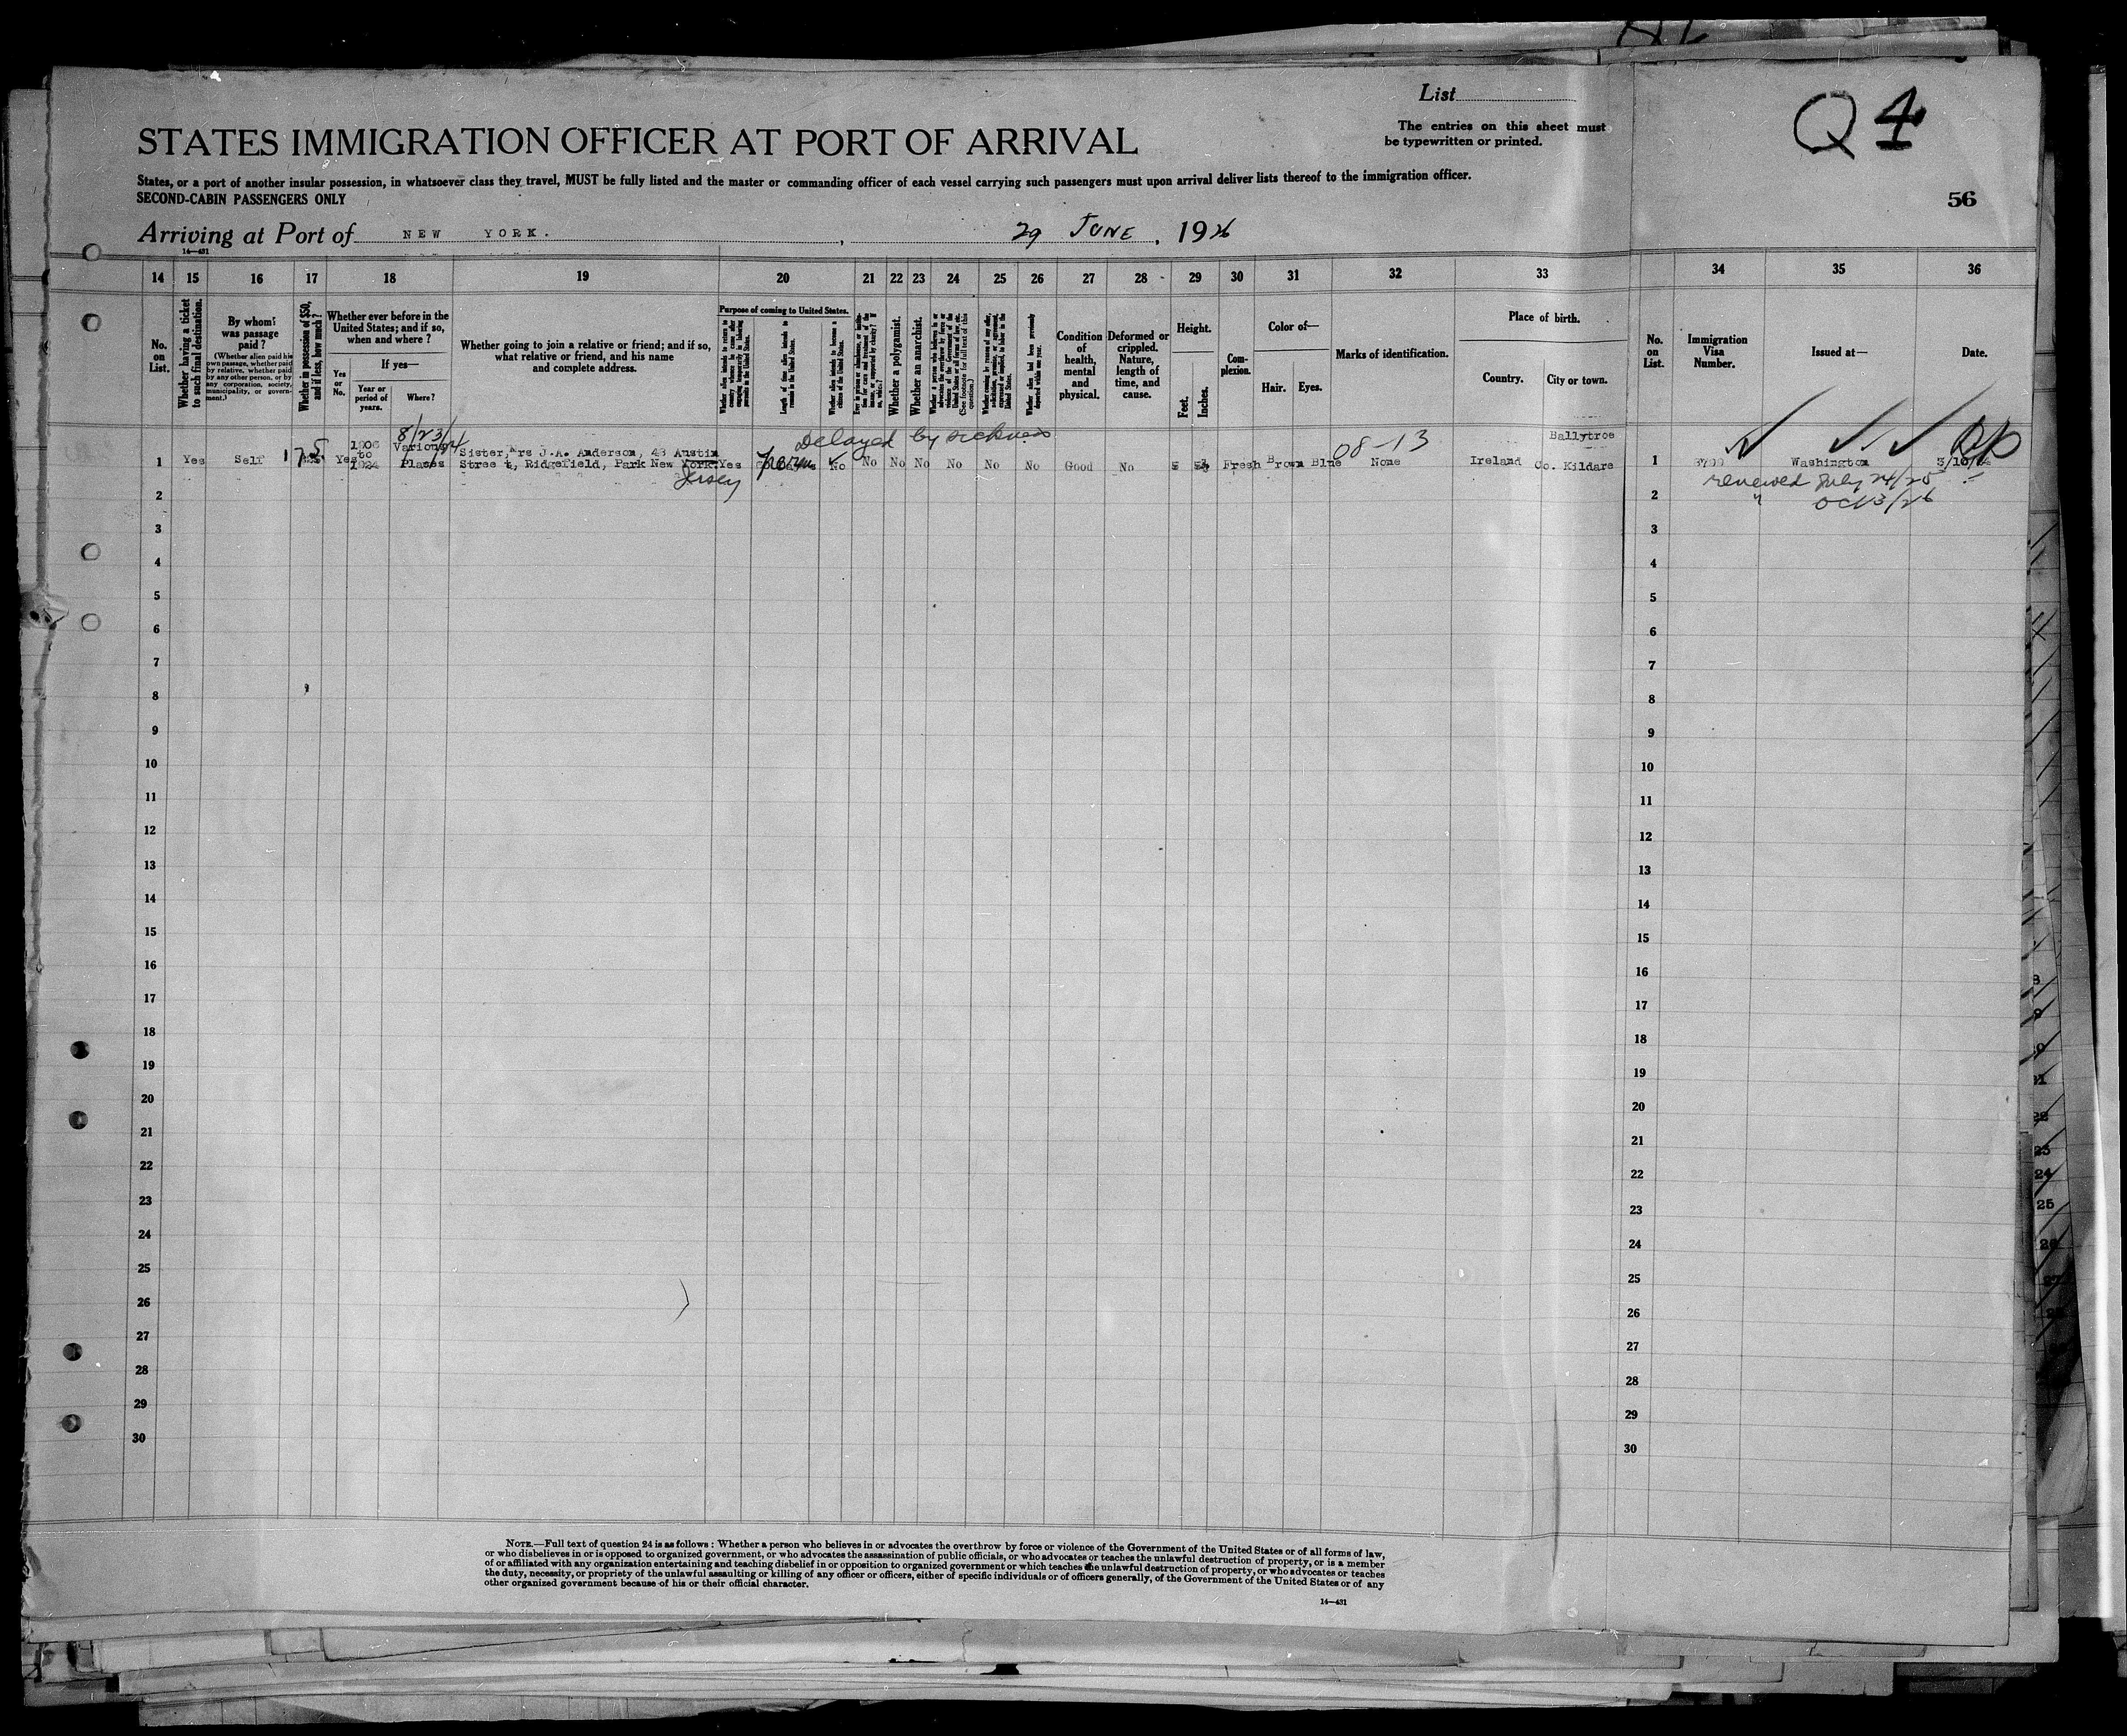 List
Q 4
STATES IMMIGRATION OFFICER AT PORT OF ARRIVAL
The entries on this sheet must
be typewritten or printed.
States, or a port of another insular possession, in whatsoever class they travel, MUST be fully listed and the master or commanding officer of each vessel carrying such passengers must upon arrival deliver lists thereof to the immigration officer.
SECOND-CABIN PASSENGERS ONLY
56
Arriving at Port of NEW YORK. , 29 JUNE , 1926
14—431
14 15 16 17 18 19 20 21 22 23 24 25 26 27 28 29 30 31 32 33 34 35 36
No. on List.
Whether having a ticket to such final destination.
By whom was passage paid?
(Whether alien paid his own passage, whether paid by relative, whether paid by any other person, or by any corporation, society, municipality, or government.)
Whether in possession of $50, and if less, how much?
Whether ever before in the United States; and if so, when and where?
Yes or No.
If yes—
Year or period of years.
Where?
Whether going to join a relative or friend; and if so, what relative or friend, and his name and complete address.
Purpose of coming to United States.
Whether alien intends to return to country whence he came after engaging temporarily in laboring pursuits in the United States.
Length of time alien intends to remain in the United States.
Whether alien intends to become a citizen of the United States.
Whether a polygamist.
Whether an anarchist.
Condition of health, mental and physical.
Deformed or crippled. Nature, length of time, and cause.
Height.
Feet.
Inches.
Complexion.
Color of—
Hair.
Eyes.
Marks of identification.
Place of birth.
Country.
City or town.
No. on List.
Immigration Visa Number.
Issued at—
Date.
8/23/24
Delayed by sickness
08-13
Ballytroe
1 Yes Self 175 Yes to 1924 Various Places Sister, Mrs J.A. Anderson, 43 Austin
Street, Ridgefield, Park New York. Yes perm No No No No No No No Good No 5 Fresh Brown Blue None Ireland Co. Kildare 1 Washington
Jersey
renewed July 24/25
" Oct 3/26
2 2
3 3
4 4
5 5
6 6
7 7
8 8
9 9
10 10
11 11
12 12
13 13
14 14
15 15
16 16
17 17
18 18
19 19
20 20
21 21
22 22
23 23
24 24
25 25
26 26
27 27
28 28
29 29
30 30
NOTE.—Full text of question 24 is as follows: Whether a person who believes in or advocates the overthrow by force or violence of the Government of the United States or of all forms of law,
or who disbelieves in or is opposed to organized government, or who advocates the assassination of public officials, or who advocates or teaches the unlawful destruction of property, or is a member
of or affiliated with any organization entertaining and teaching disbelief in or opposition to organized government or which teaches the unlawful destruction of property, or who advocates or teaches
the duty, necessity, or propriety of the unlawful assaulting or killing of any officer or officers, either of specific individuals or of officers generally, of the Government of the United States or of any
other organized government because of his or their official character.
14—431